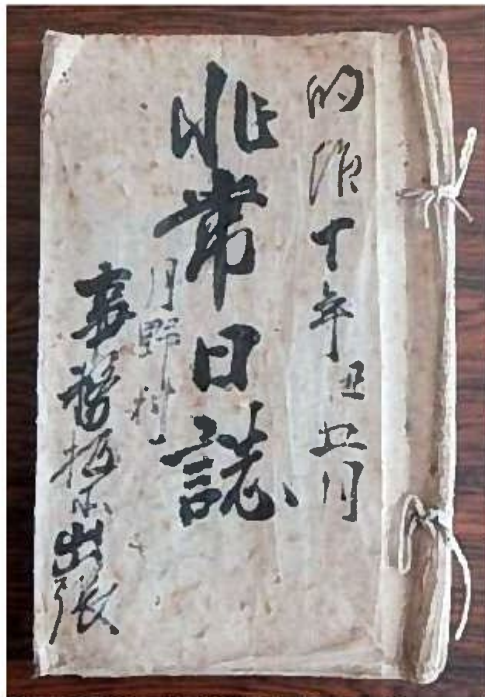 明治十年丑五月
非常日誌
月野村
事務扱所出張